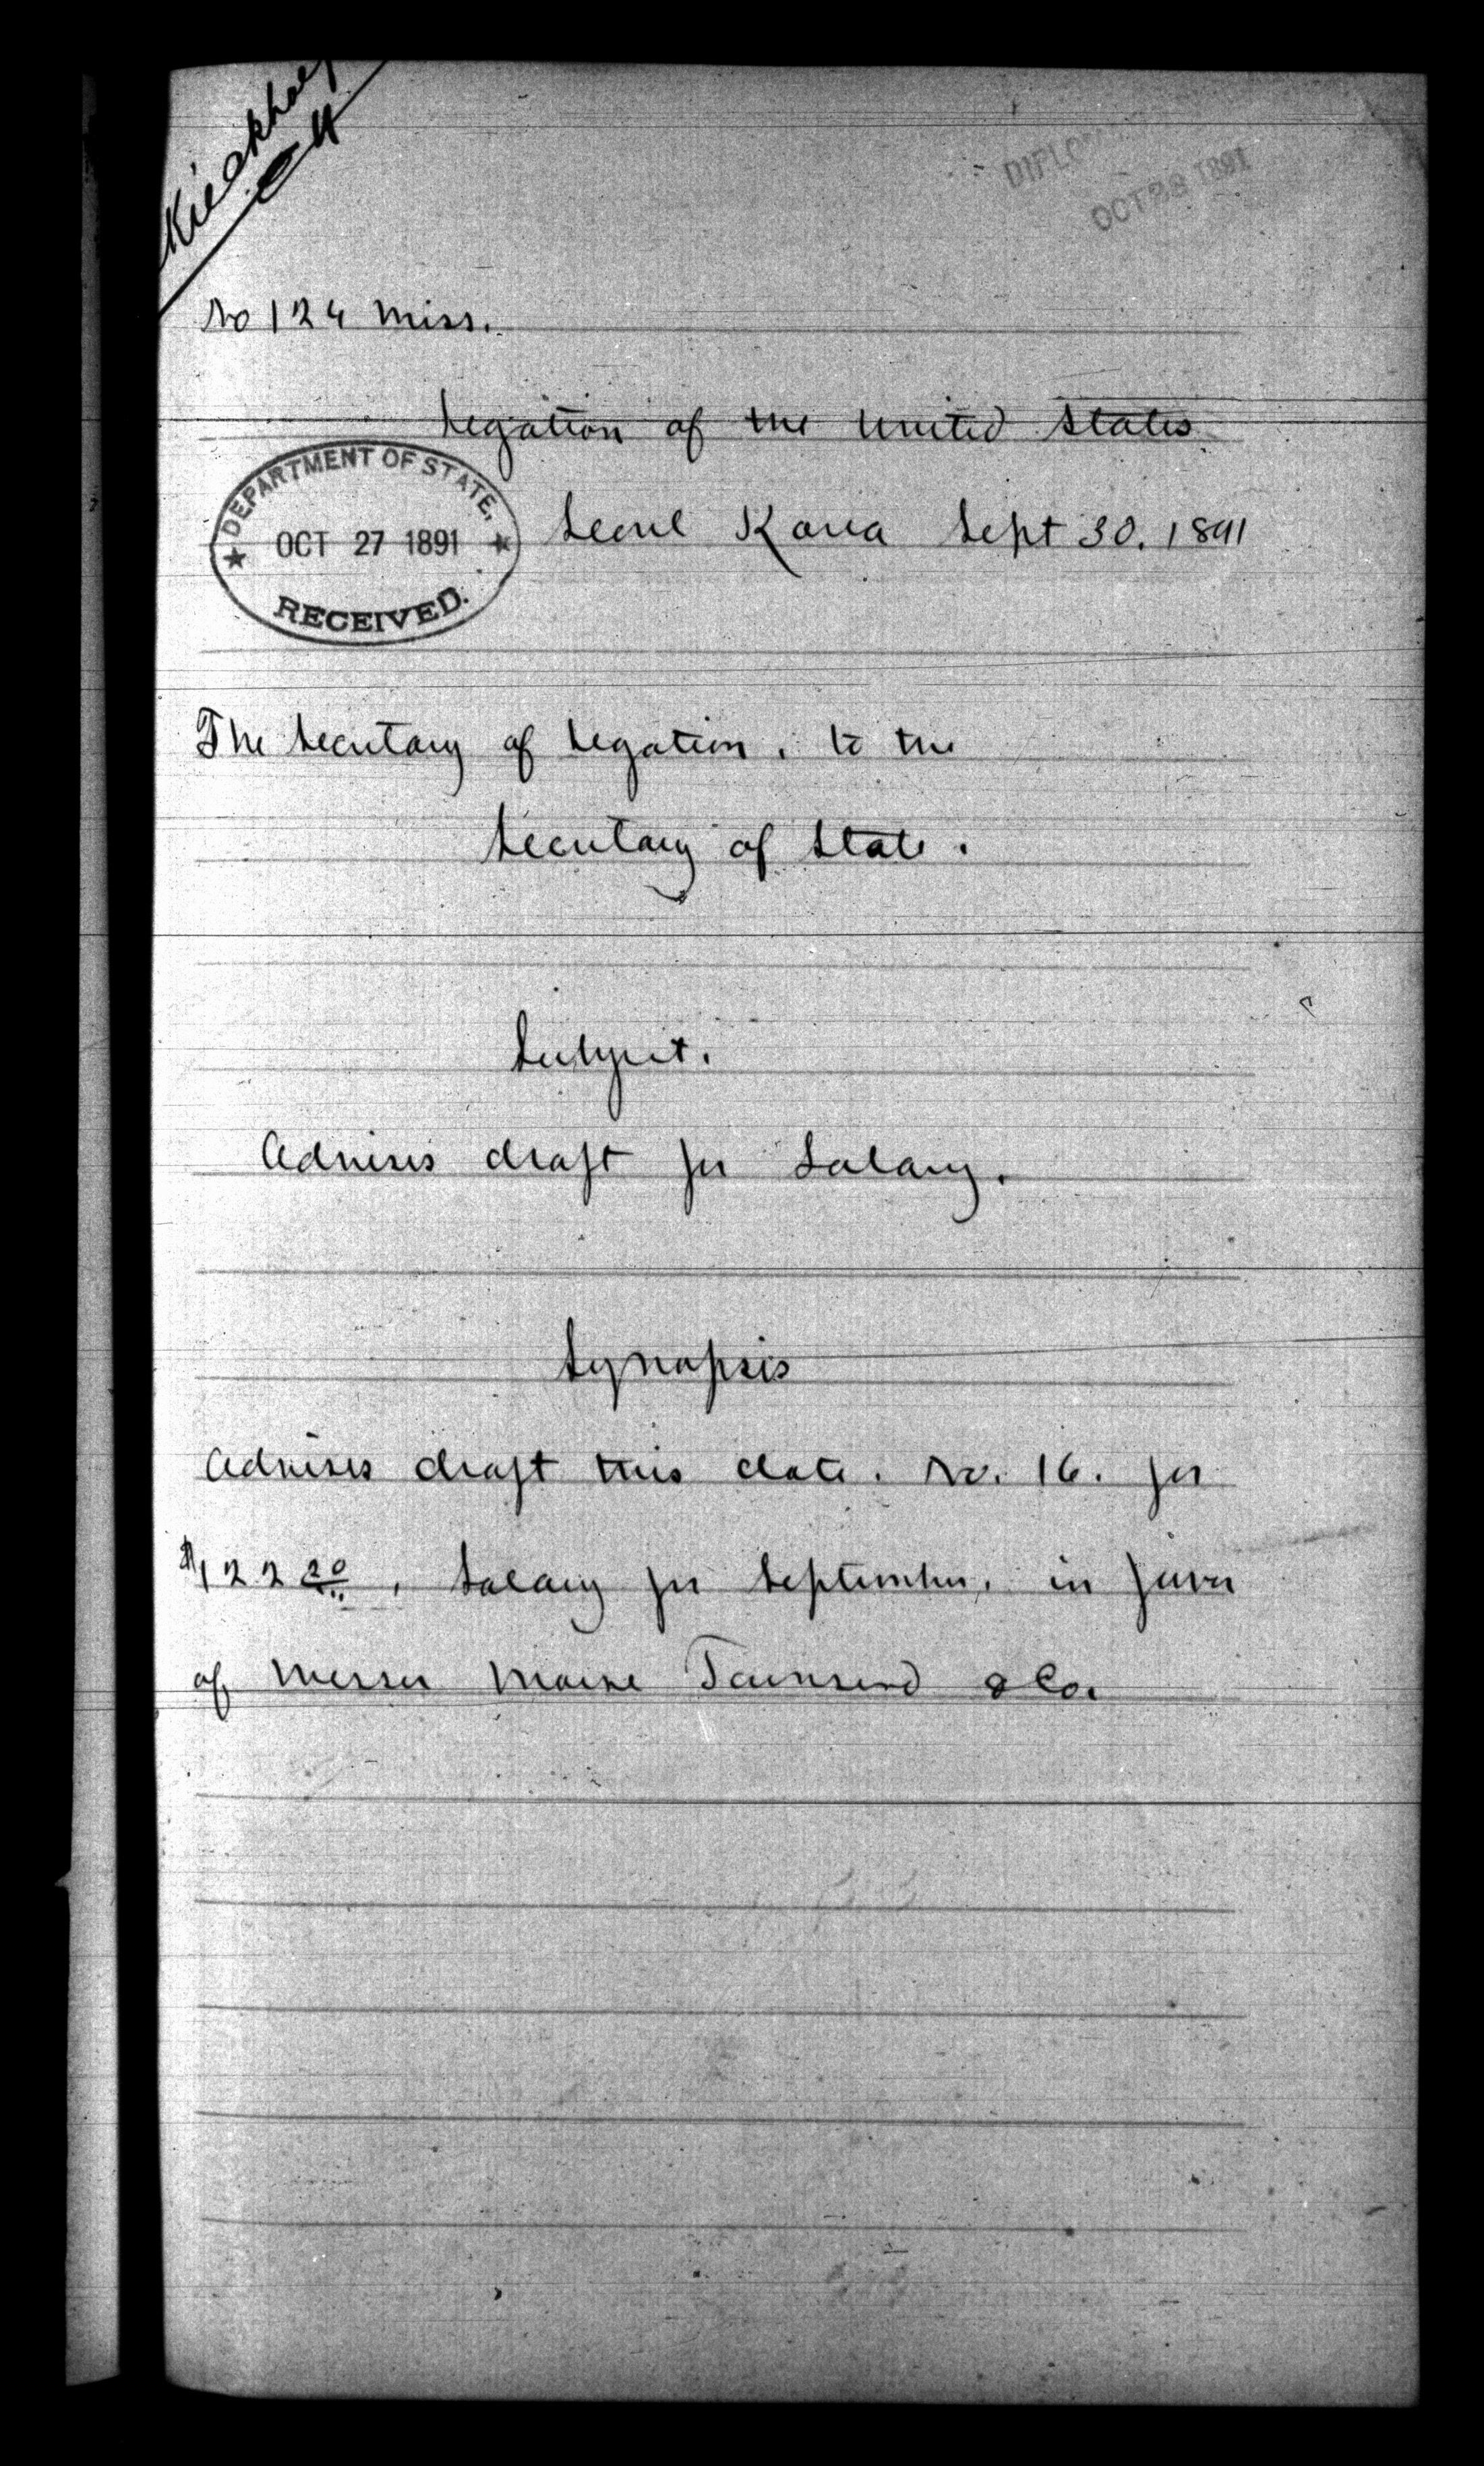 DIPLO
OCT 28 1891
No 124 Miss.
Legation of the United States
DEPARTMENT OF STATE,
OCT 27 1891
RECEIVED.
Seoul Korea Sept 30. 1891
The Secretary of Legation, to the
Secretary of State.
Subject.
Advises draft for Salary.
Synopsis
Advises draft this date. No. 16. for
$122 20, Salary for September, in favor
of Messrs Morse Townsend & Co.